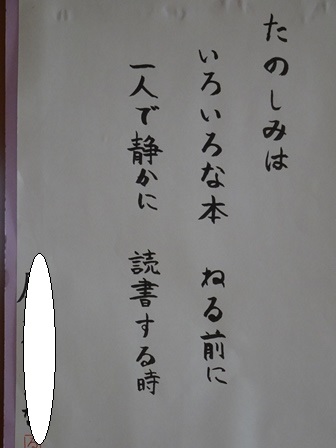 たのしみは
いろいろな本　ねる前に
一人で静かに　読書する時